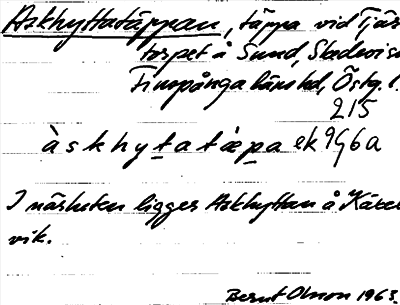 Askhyttatäppan, täppa vid Tjäs
torpet å Sund, Skedevi s
Finspånga länshd, Östg. l.
215
àskhytatæpa ek 9G6a
I närheten ligger Askhyttan å Käxel
vik.
Bernt Olsson 1963.